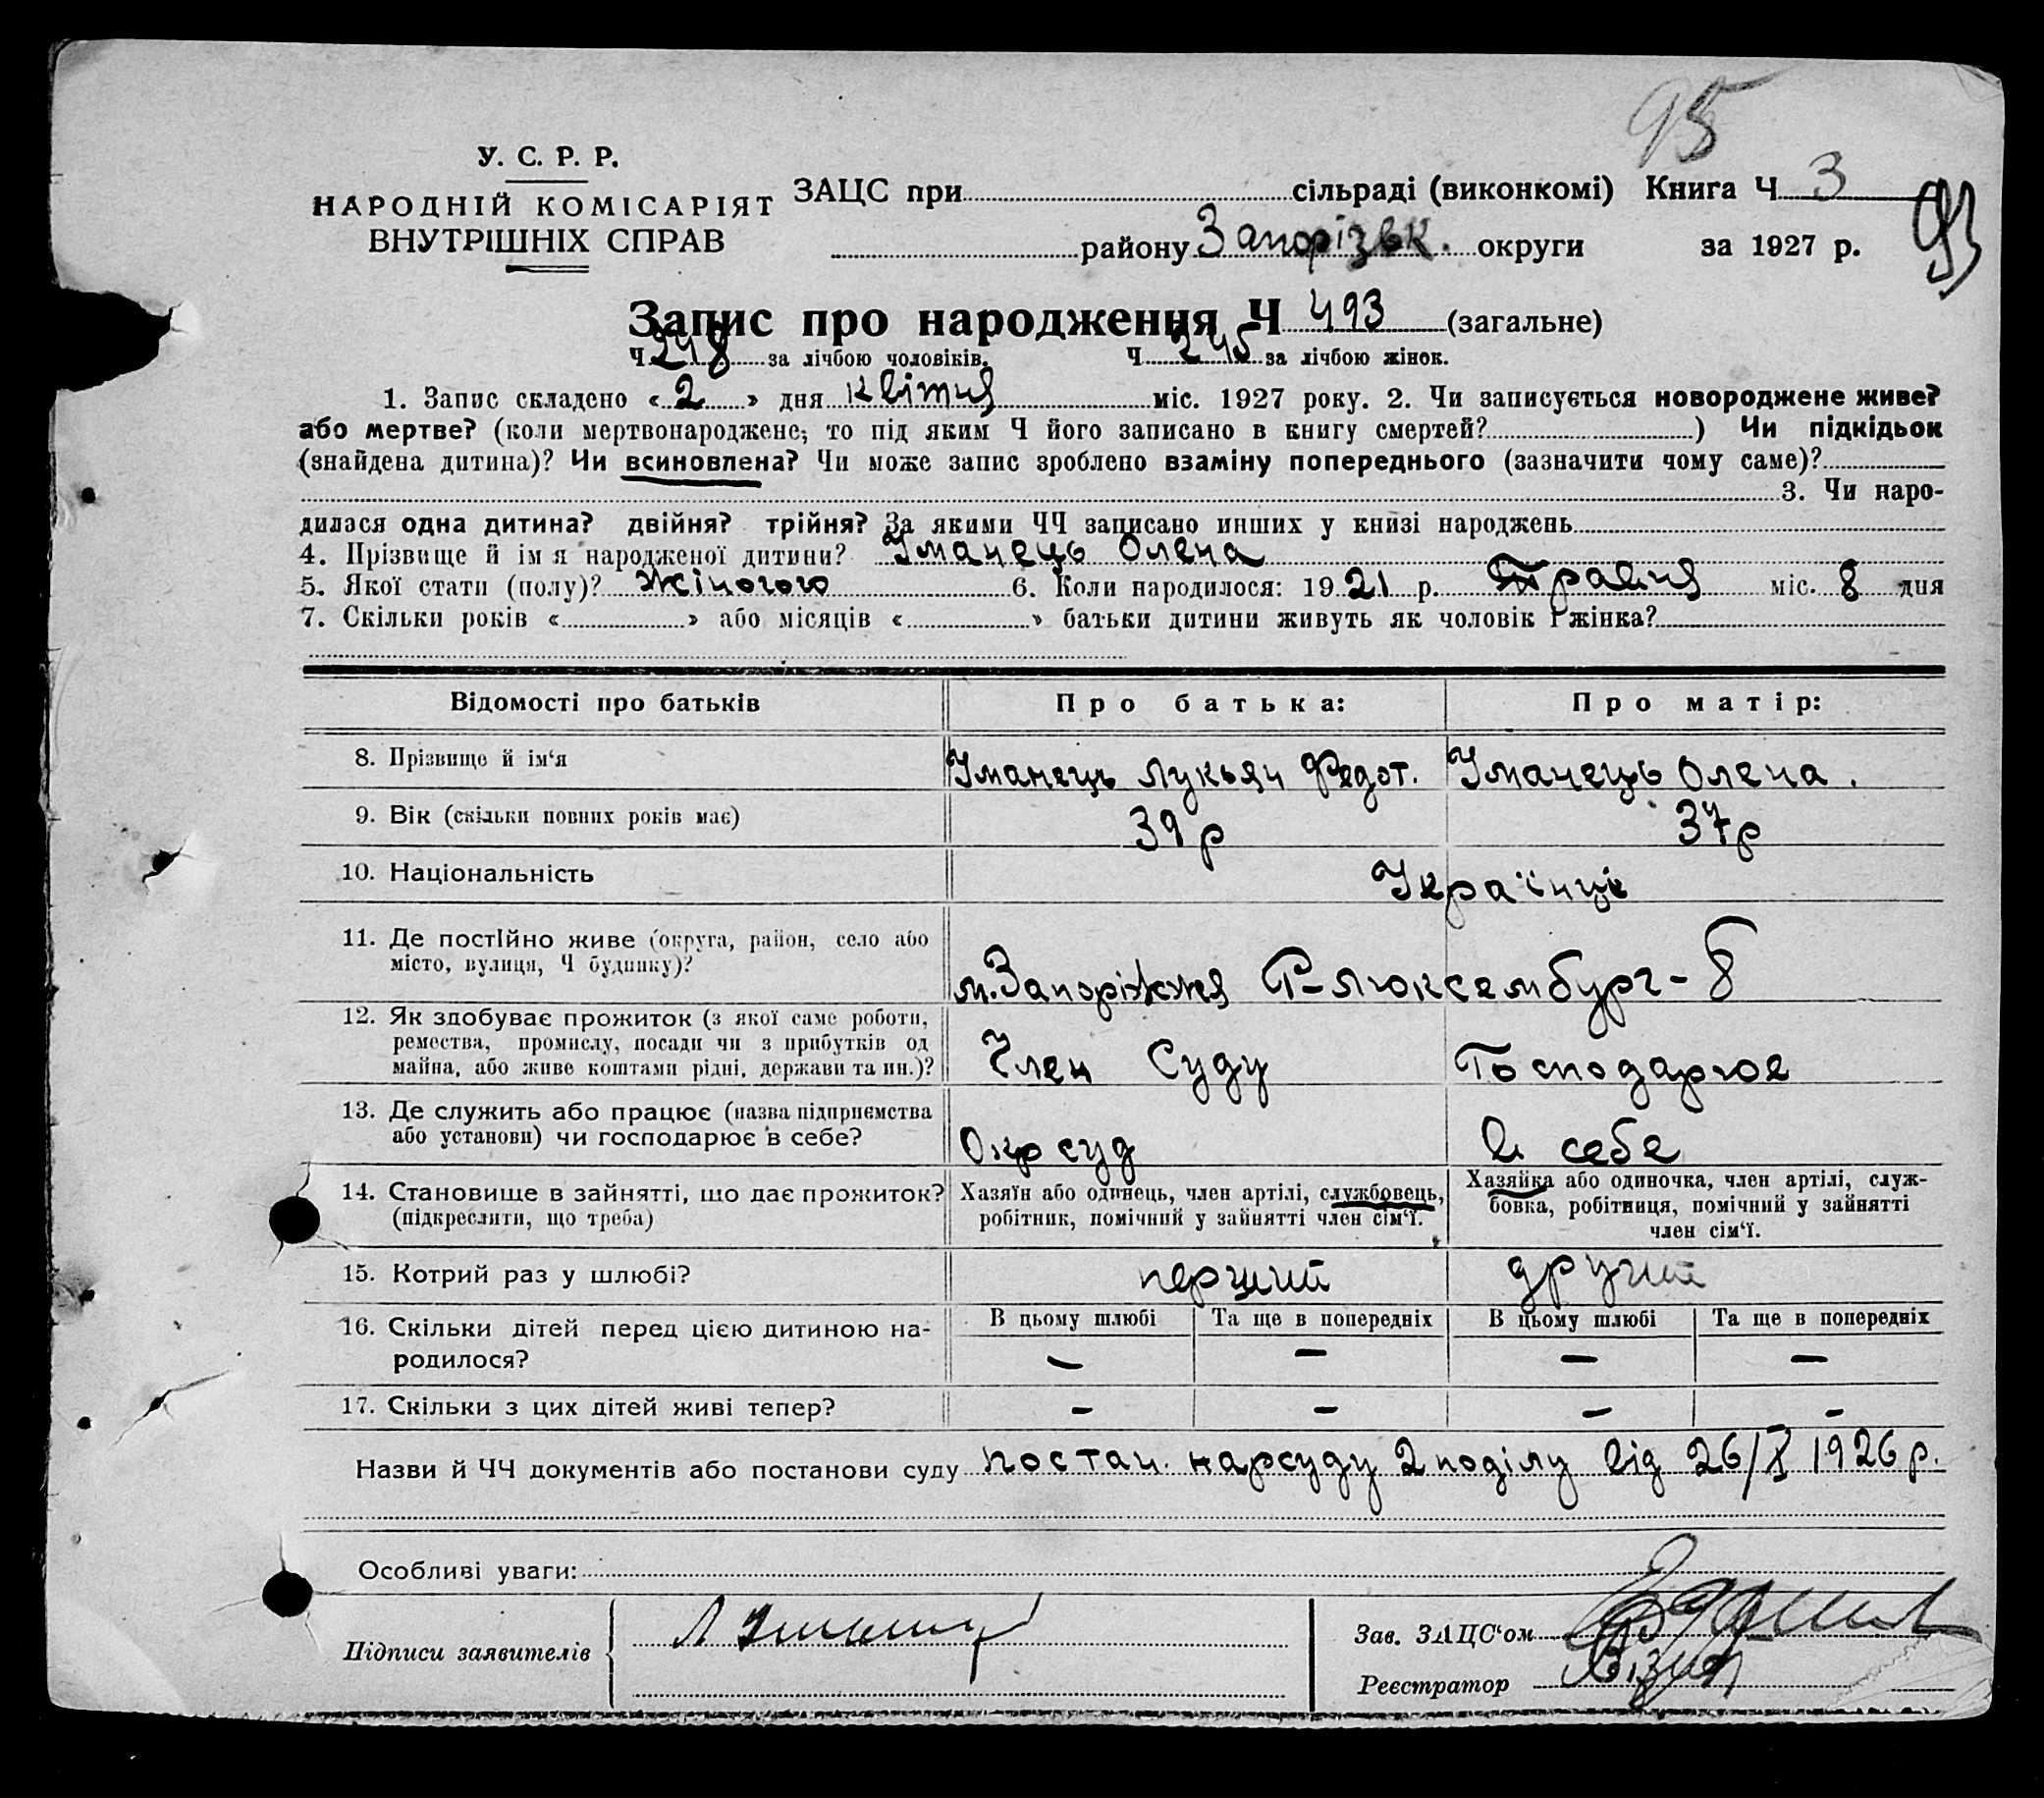 95
У. С. Р. Р.
НАРОДНІЙ КОМІСАРІЯТ
ВНУТРІШНІХ СПРАВ
ЗАЦС при сільраді (виконкомі) Книга Ч 3
93
району Запорізьк. округи за 1927 р.
Запис про народження Ч 493 (загальне)
Ч 248 за лічбою чоловіків. Ч 245 за лічбою жінок.
1. Запис складено «2» дня квітня міс. 1927 року. 2. Чи записується новороджене живе?
або мертве? (коли мертвонароджене, то під яким Ч його записано в книгу смертей? ) Чи підкідьок
(знайдена дитина)? Чи всиновлена? Чи може запис зроблено взаміну попереднього (зазначити чому саме)?
3. Чи наро-
дилася одна дитина? двійня? трійня? За якими ЧЧ записано инших у книзі народжень
4. Прізвище й ім я народженої дитини? Уманець Олена
5. Якої стати (полу)? жіночого 6. Коли народилося: 1921 р. Травня міс. 8 дня
7. Скільки років « » або місяців « » батьки дитини живуть як чоловік і жінка?
Відомості про батьків Про батька: Про матір:
8. Прізвище й ім‘я Уманець Лукьян Федот. Уманець Олена.
9. Вік (скільки повних років має) 39р 37р
10. Національність Українці
11. Де постійно живе (округа, район, село або
місто, вулиця, Ч будинку)? м. Запоріжжя Р-Люксембург-8
12. Як здобуває прожиток (з якої саме роботи,
ремества, промислу, посади чи з прибутків од
майна, або живе коштами рідні, держави та ин.)? Член Суду Господарює
13. Де служить або працює (назва підприємства
або установи) чи господарює в себе? Окрсуд в себе
14. Становище в зайнятті, що дає прожиток?
(підкреслити, що треба)
Хазяїн або одинець, член артілі, службовець,
робітник, помічний у зайнятті член сім‘ї.
Хазяйка або одиночка, член артілі, служ-
бовка, робітниця, помічний у зайнятті
член сім‘ї.
15. Котрий раз у шлюбі? перший другий
16. Скільки дітей перед цією дитиною на-
родилося?
В цьому шлюбі Та ще в попередніх В цьому шлюбі Та ще в попередніх
— — — —
17. Скільки з цих дітей живі тепер? — — — —
Назви й ЧЧ документів або постанови суду постан. нарсуду 2 поділу від 26/X 1926 р.
Особливі уваги:
Підписи заявителів Л Уманец
Зав. ЗАЦС‘ом
Реєстратор